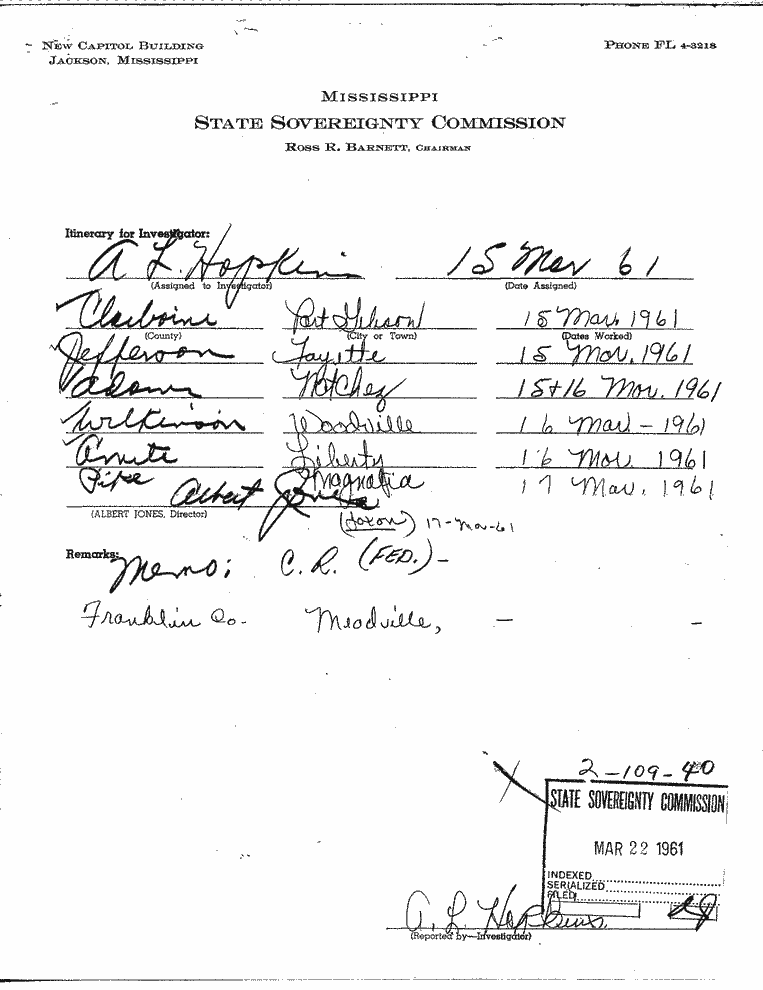 NEW CAPITOL BUILDING
JACKSON, MISSISSIPPI
PHONE FL 4-3218
MISSISSIPPI
STATE SOVEREIGNTY COMMISSION
ROSS R. BARNETT, CHAIRMAN
Itinerary for Investigator:
A L. Hopkins 15 Mar 61
(Assigned to Investigator) (Date Assigned)
Claiborne Port Gibson 15 Mar, 1961
(County) (City or Town) (Dates Worked)
Jefferson Fayette 15 Mar. 1961
Adams Natchez 15+16 Mar. 1961
Wilkinson Woodville 16 Mar - 1961
Amite Liberty 16 Mar. 1961
Pike Magnolia 17 Mar. 1961
Albert Jones
(ALBERT JONES, Director)
17-Mar-61
Remarks:
Memo: C. R. (FED.) -
Franklin Co. Meadville, - -
2-109-40
STATE SOVEREIGNTY COMMISSION
MAR 22 1961
INDEXED
SERIALIZED
FILED
A. L. Hopkins
(Reported by-Investigator)